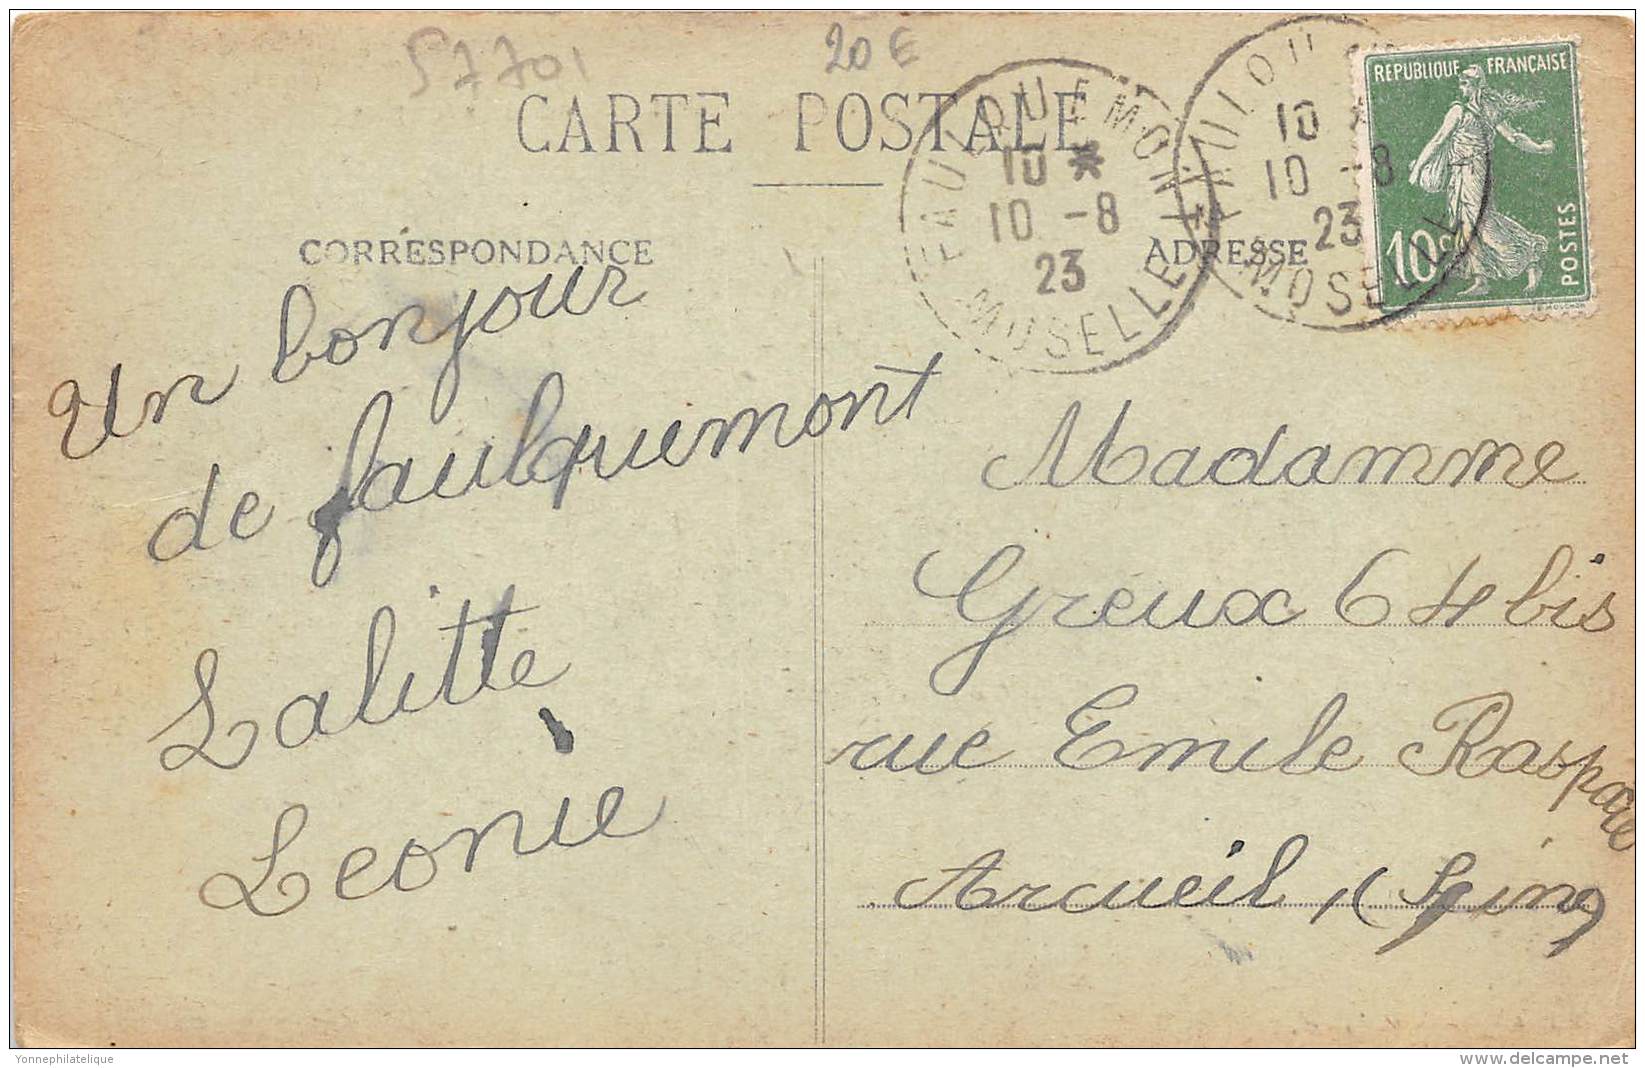 57701
20€
CARTE POSTALE
FAULQUEMONT
10 *
10 -8
23
MOSELLE
10 *
10 -8
23
MOSELLE
REPUBLIQUE FRANÇAISE
10c
POSTES
CORRESPONDANCE
ADRESSE
Un bonjour
de faulquemont
Lalitte
Leonie
Madamme
Greux 64 bis
rue Emile Raspail
Arcueil (Seine)
Yonnephilatelique
www.delcampe.net